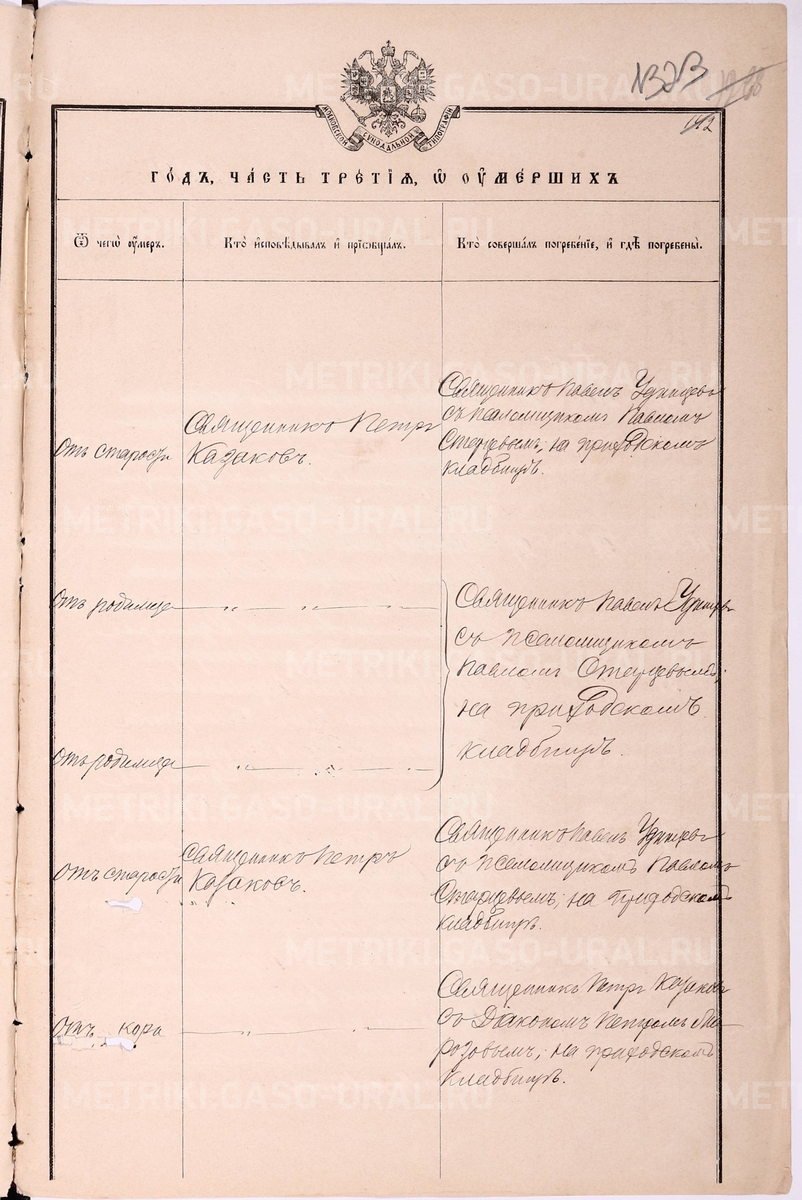 МОСКОВСКОЙ СѴНОДАЛЬНОЙ ТИПОГРАФІИ
142
ГОДЪ, ЧАСТЬ ТРЕТІѦ, Ѿ ОУМЕРШИХЪ
Ѿ чегѡ оумеръ.
Кто исповѣдывалъ и прїѡбщалъ.
Кто совершалъ погребенїе, и гдѣ погребены.
Отъ старости
Священникъ Петръ
Казаковъ.
Священникъ Павелъ
съ псаломщикомъ Павломъ
Старцевымъ, на приходскомъ
кладбищѣ.
Отъ родимца
Священникъ Павелъ
съ псаломщикомъ
Павломъ Старцевымъ,
на приходскомъ
кладбищѣ.
Отъ родимца
Отъ старости
Священникъ Петръ
Казаковъ.
Священникъ Павелъ
съ псаломщикомъ Павломъ
Старцевымъ, на приходскомъ
кладбищѣ.
Отъ кора
Священникъ Петръ Казаковъ
съ Діакономъ Петромъ Мо-
розовымъ, на приходскомъ
кладбищѣ.
METRIKI.GASO-URAL.RU